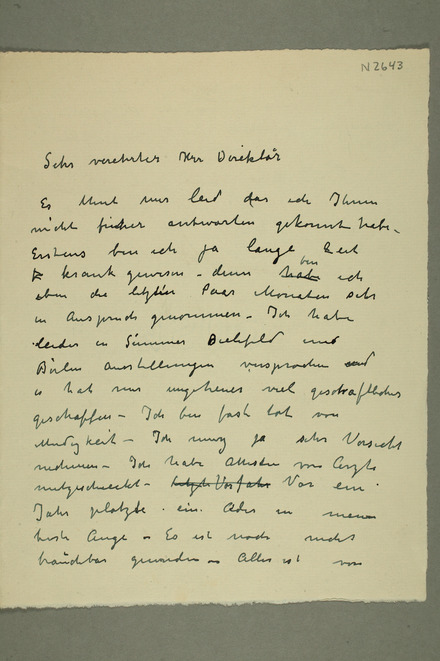 N 2643
Sehr verehrter Herr Direktör
Es thut mir leid das ich Ihnen
nicht früher antworten gekonnt habe.
Erstens bin ich ja lange Zeit
krank gewesen – dann bin ich
eben die letzten Paar Monaten sehr
in Anspruch genommen – Ich habe
leider in Bielefeld und
Berlin Ausstellungen versprochen und
es hat mir ungeheuer viel geschäftliches
geschaffen – Ich bin fast tot von
Mudigkeit – Ich muss ja sehr Vorsicht
nehmen – Ich habe Attesten von Arzte
mitgeschickt – Vor ein
Jahr platzte ein Ader in meinem
Auge – Es ist noch nicht
brauchbar geworden – Alles ist von